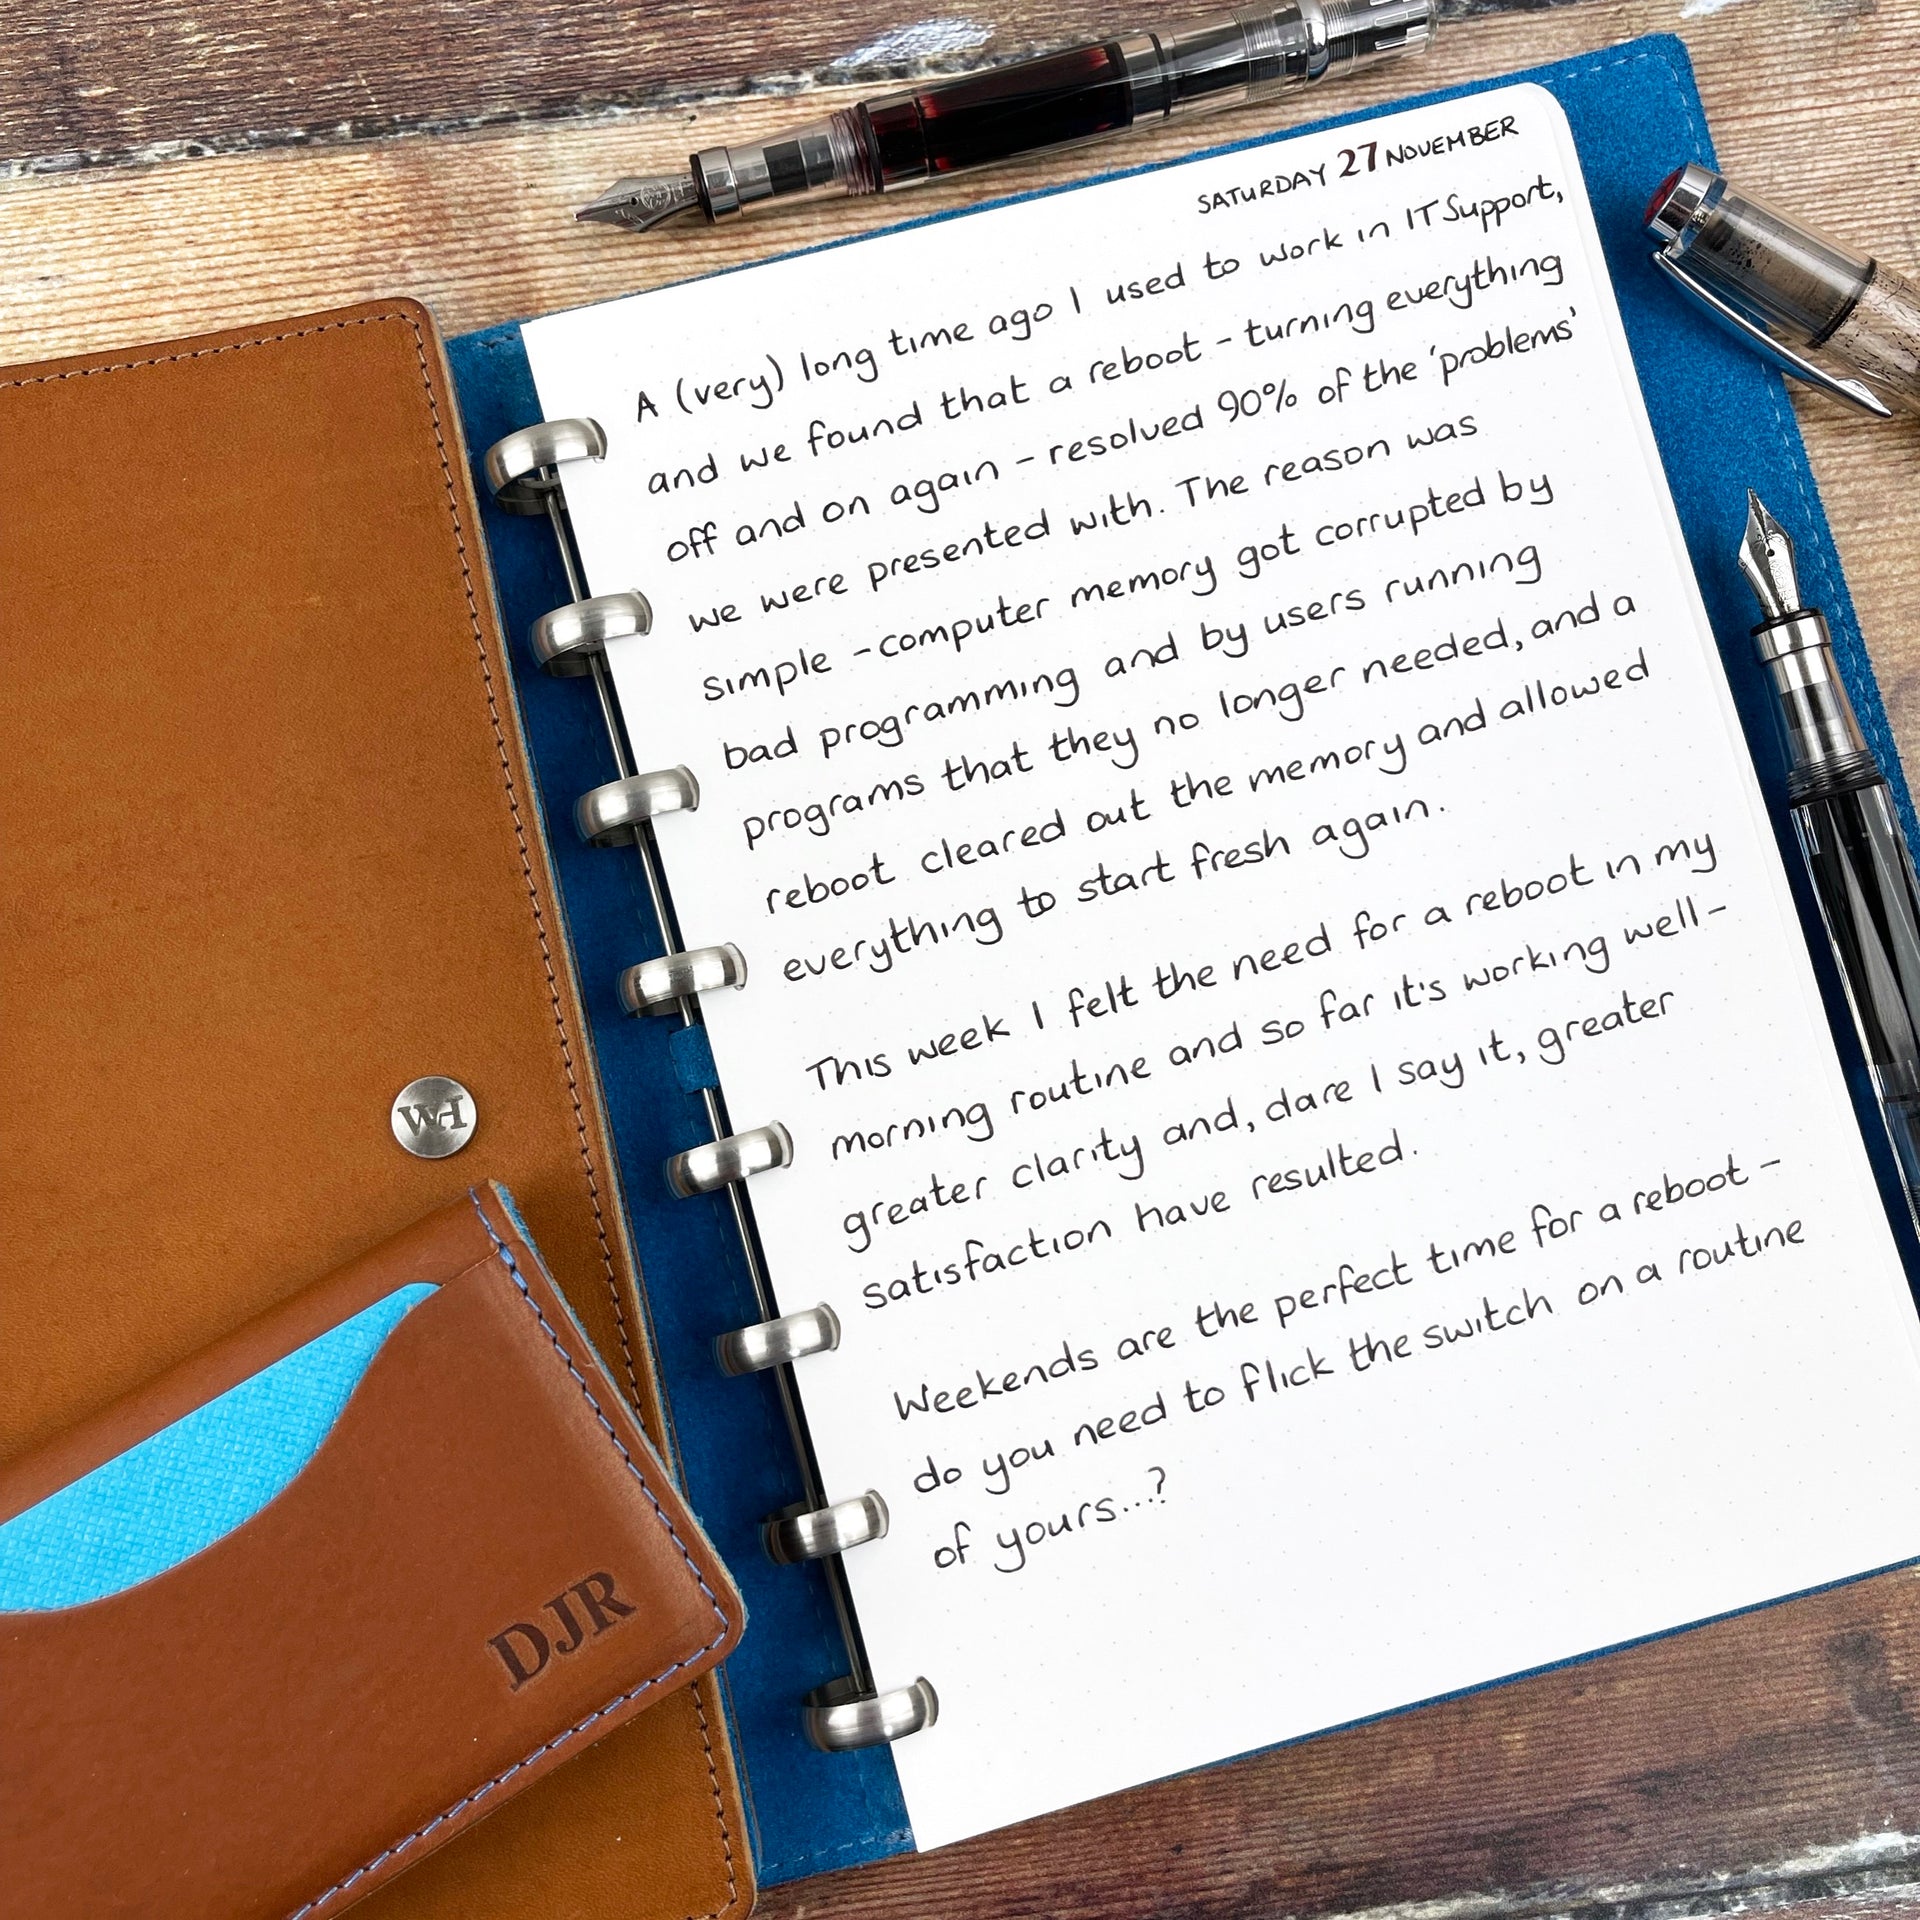 SATURDAY 27 NOVEMBER
A (very) long time ago I used to work in IT Support,
and we found that a reboot - turning everything
off and on again - resolved 90% of the 'problems'
we were presented with. The reason was
simple - computer memory got corrupted by
bad programming and by users running
programs that they no longer needed, and a
reboot cleared out the memory and allowed
everything to start fresh again.
This week I felt the need for a reboot in my
morning routine and so far it's working well -
greater clarity and, dare I say it, greater
satisfaction have resulted.
Weekends are the perfect time for a reboot -
do you need to flick the switch on a routine
of yours...?
WH
DJR